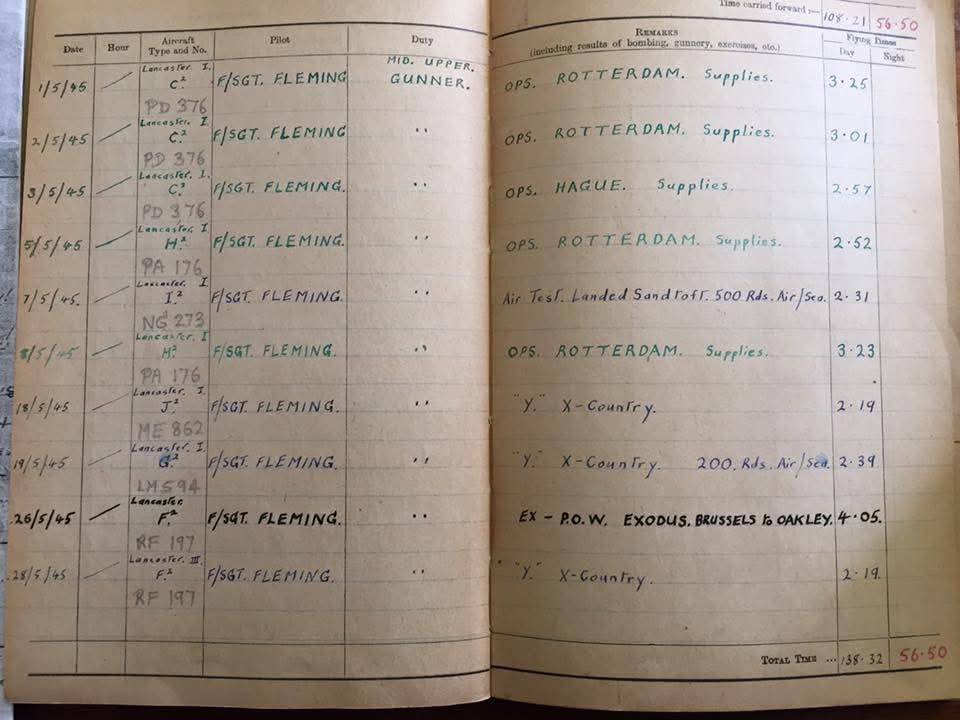 Time carried forward :— 108·21 56·50
Date Hour Aircraft Type and No. Pilot Duty REMARKS (including results of bombing, gunnery, exercises, etc.) Flying Times Day Night
1/5/45 Lancaster. I. C² F/SGT. FLEMING MID. UPPER. GUNNER. OPS. ROTTERDAM. Supplies. 3·25
PD 376
2/5/45 Lancaster. I C.² F/SGT. FLEMING " OPS. ROTTERDAM. Supplies. 3·01
PD 376
3/5/45 Lancaster. I. C.² F/SGT. FLEMING. " OPS. HAGUE. Supplies. 2·57
PD 376
5/5/45 Lancaster. I H.² F/SGT. FLEMING. " OPS. ROTTERDAM. Supplies. 2·52
PA 176
7/5/45. Lancaster. I I.² F/SGT. FLEMING. " Air Test. Landed Sandtoft. 500 Rds. Air/Sea. 2·31
NG 273
8/5/45 Lancaster. I H.² F/SGT. FLEMING. " OPS. ROTTERDAM. Supplies. 3·23
PA 176
18/5/45 Lancaster. I. J.² F/SGT. FLEMING. " "Y." X-Country. 2·19
ME 862
19/5/45 Lancaster. I. G.² F/SGT. FLEMING. " "Y." X-Country. 200. Rds. Air/Sea. 2·39
LM 594
26/5/45 Lancaster. F.² F/SGT. FLEMING. " EX – P.O.W. EXODUS. BRUSSELS to OAKLEY. 4·05.
RF 197
28/5/45 Lancaster. III. F.² F/SGT. FLEMING. " "Y." X-Country. 2·19.
RF 197
TOTAL TIME ... 138·32 56·50